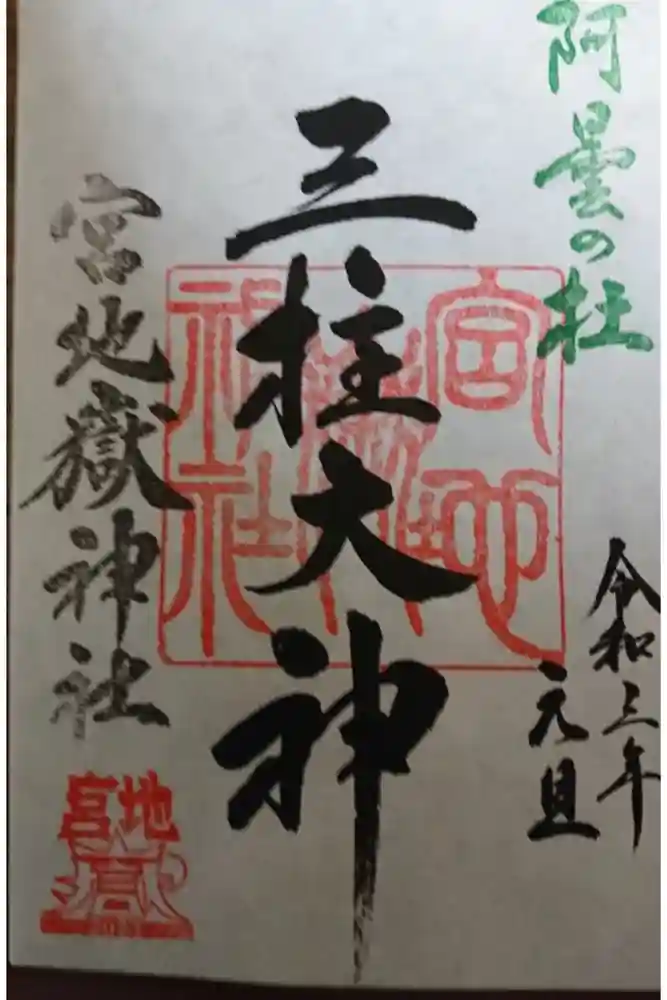 阿曇の杜
令和三年
元旦
三柱大神
宮地嶽神社
宮地嶽神社
宮地
嶽